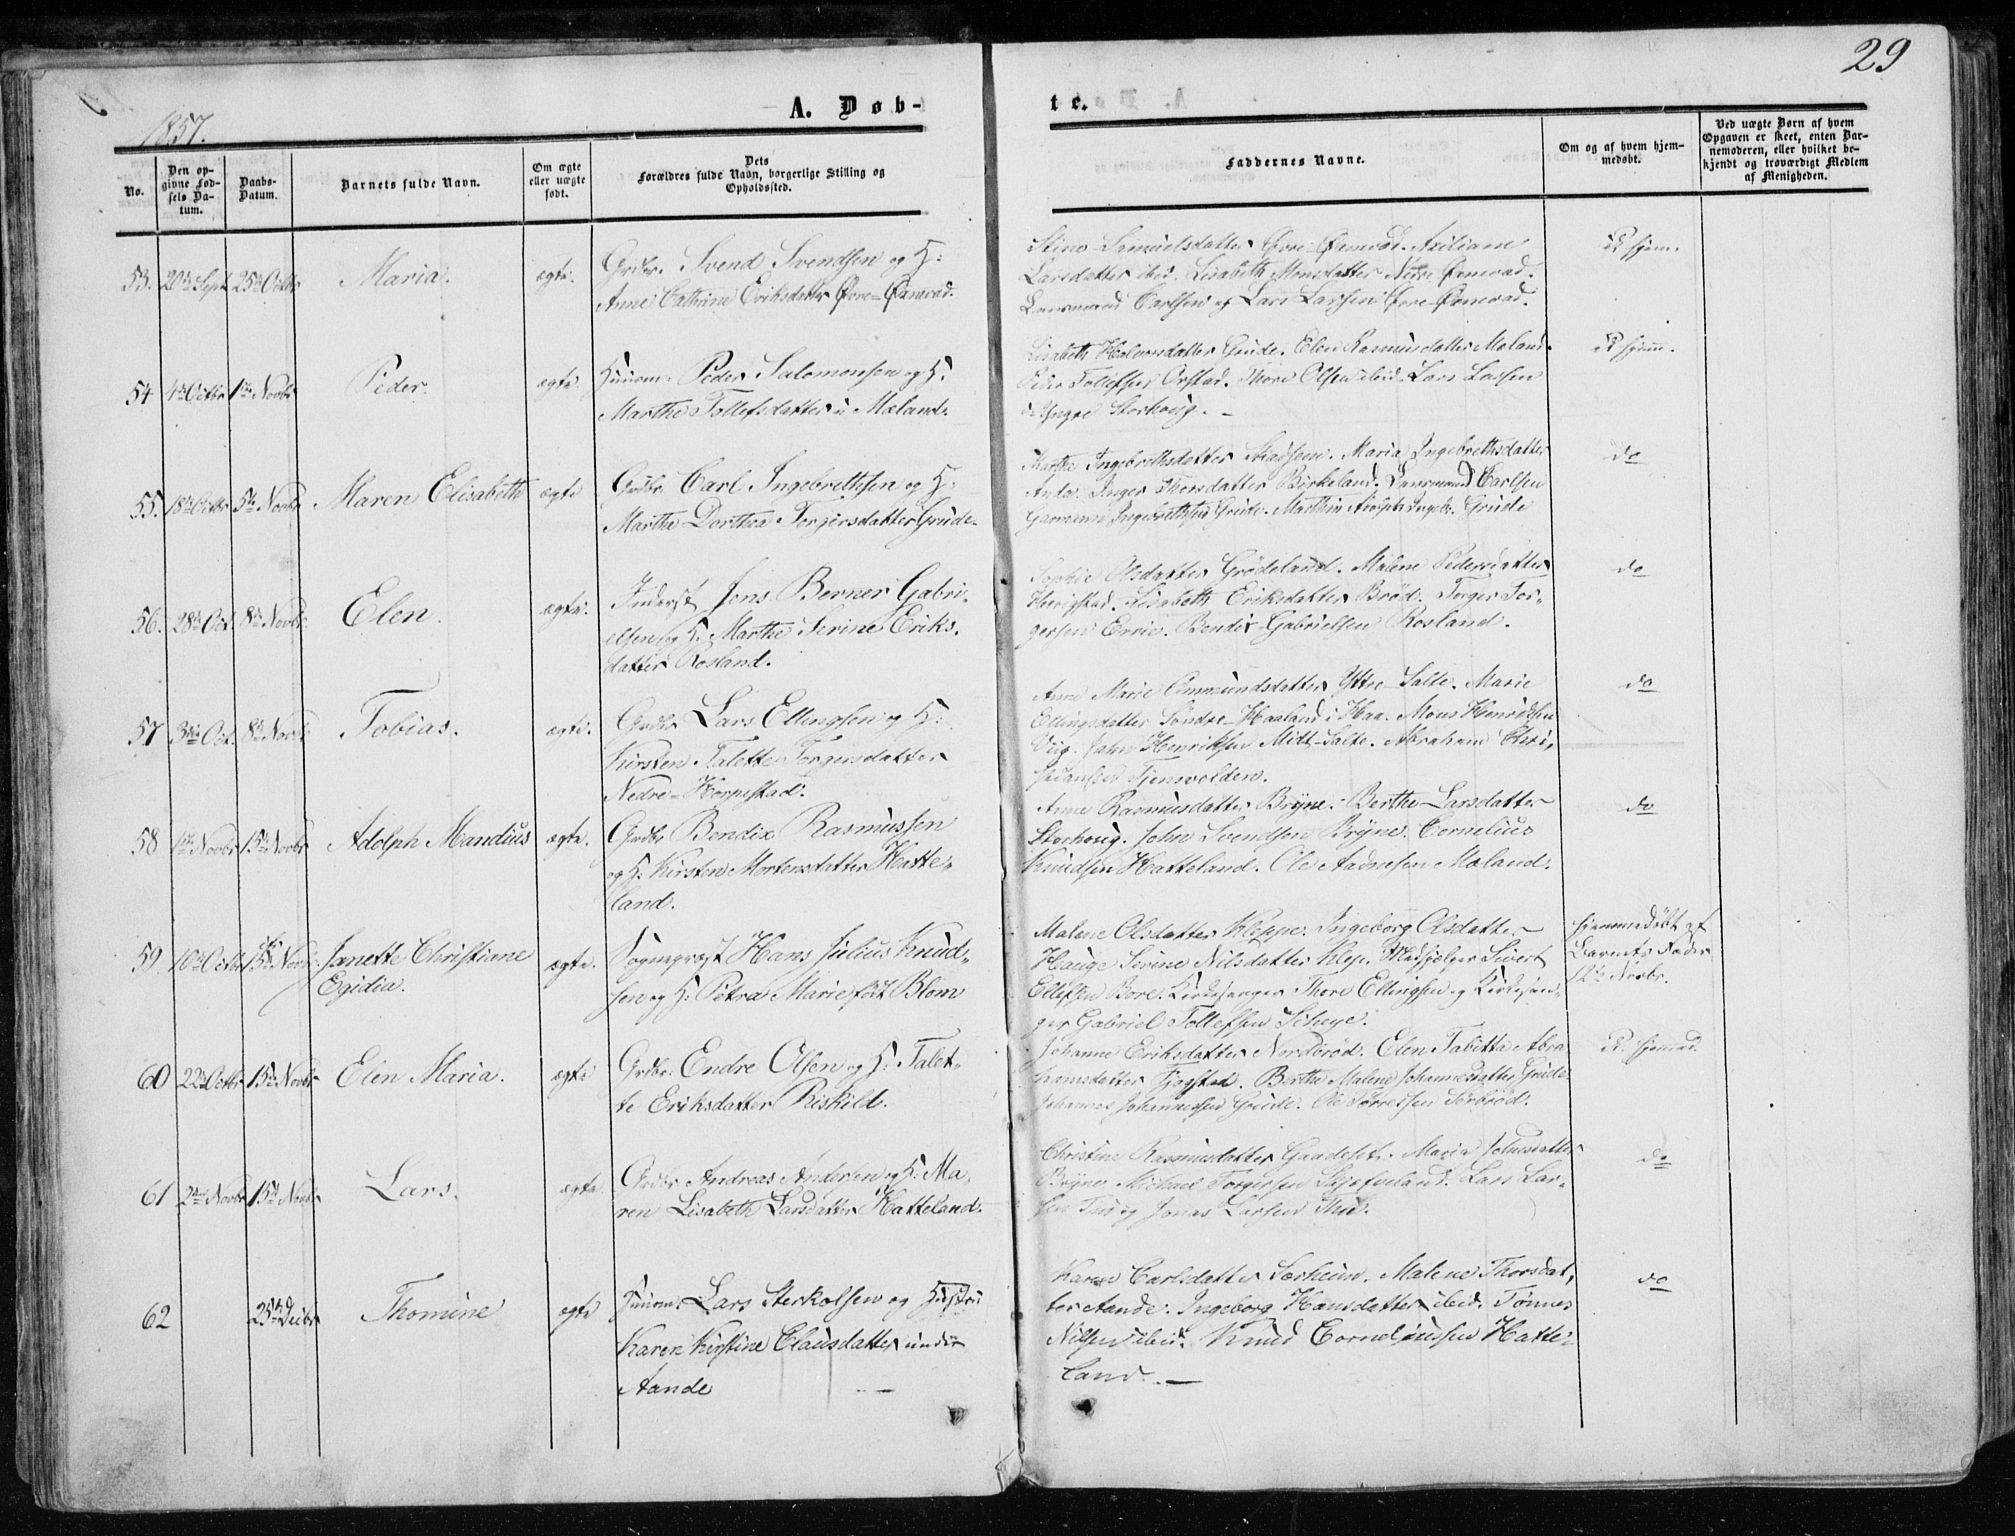 29
1857.
A. Døb-
te.
No.
Den opgivne Fødsels Datum.
Daabs-Datum.
Barnets fulde Navn.
Om ægte eller uægte født.
Dets Forældres fulde Navn, borgerlige Stilling og Opholdssted.
Faddernes Navne.
Om og af hvem hjemmedøbt.
Ved uægte Børn af hvem Opgaven er skeet, enten Barnemoderen, eller hvilket bekjendt og troværdigt Medlem af Menigheden.
53. 20de Sept 25de Octbr Maria. ægte. Grdbr. Svend Svendsen og H:
Anne Cathrine Eriksdatter Øvre-Øxnevad.
Stine Samuelsdatter Øvre Øxnevad. Axiliane
Larsdatter ibid. Lisabeth Monsdatter Nedre Øxnevad.
Lensmand Carlsen og Lars Larsen Øvre-Øxnevad.
54 4de Octbr 1ste Novbr Peder. ægte. Huusm. Peder Salomonsen og H.
Marthe Tollefsdatter u Mæland.
Lisabeth Halvorsdatter Grude. Elen Rasmusdatter Mæland.
Peder Tollefsen Orstad. Thore Olsen ibid. Lars Larsen
Storhoug. -
55. 18de Octbr 5te Novbr Maren Elisabeth ægte Grdbr Carl Ingebrethsen og H:
Marthe Dorthea Torgersdatter Grude.
Marthe Ingebrethsdatter. Maria Ingebrethsdatter
Anda. Inger Thorsdatter Birkeland. Lensmand Carlsen
Garmann Ingebrethsen Grude. Marthin Adolph Ingeb. Grude
do
56. 28de Oct. 8de Novbr. Elen. ægte. Inderst Jens Berner Gabri-
elsen og H. Marthe Serine Eriks-
datter Rosland.
Sophie Olsdatter Grødeland. Malene Pedersdatter
Herigstad. Lisabeth Eriksdatter Brød. Torger Tor-
gersen Errie. Bendix Gabrielsen Rosland.
do
57 3die Oct. 8de Novbr. Tobias. ægte. Grdbr Lars Ellingsen og H:
Kirsten Talette Torgersdatter
Nedre-Horpestad.
Anne Marie Ommundsdatter Yttre-Salte. Marie
Ellingsdatter Søndre-Haaland i Haa. Mons Henriksen
Viig. John Henriksen Midt-Salte. Abraham Chri-
stiansen Tjensvolden.
do
58 1ste Novbr 15de Novbr Adolph Mandius ægte. Grdbr Bendix Rasmussen
og H. Kirsten Mortensdatter Hatte-
land.
Anne Rasmusdatter Bryne. Berthe Larsdatter
Storhoug. John Svendsen Bryne. Cornelius
Knudsen Hatteland. Ole Aadnesen Mæland.
do
59 10de Octbr 15de Novbr. Janette Christiane
Egidia. ægte. Sogneprest Hans Julius Knud-
sen og H. Petra Marie født Blom
Malene Olsdatter Kleppe. Ingeborg Olsdatter
Hauge Serine Nilsdatter Klep. Medhjelper Sivert
Ellefsen Bore. Kirkesanger Thore Ellingsen og Kirkesan-
ger Gabriel Tollefsen Scheye.
Hjemmedøbt af
Barnets Fader
12te Novbr.
60 22de Octbr 15de Novbr Elen Maria. ægte Grdbr. Endre Olsen og H. Talet-
te Eriksdatter Riskild.
Johanne Eriksdatter Norderød. Elen Tabitta Abra
hamsdatter Fjogstad. Berthe Malene Johannesdatter Grude
Johannes Johannessen Grude. Ole Tørresen Sørbrød.
61 2den Novbr 15de Novbr Lars. ægte Grdbr Andreas Andersen og H. Ma-
ren Lisabeth Larsdatter Hatteland.
Christine Rasmusdatter Gaadeset. Maria Johnsdatter
Bryne Michael Torgersen Skjefveland. Lars Lar-
sen Thu og Jonas Larsen Thu.
do
62 25de Decbr Thomine ægte Huusm. Lars Sterkolsen og Hustru
Karen Kirstine Clausdatter under
Aande
Karen Carlsdatter Særheim. Malene Thorsdat-
ter Aande. Ingeborg Hansdatter ibid. Tønnes
Nilsen ibid. Knud Corneliussen Hatte-
land. -
do